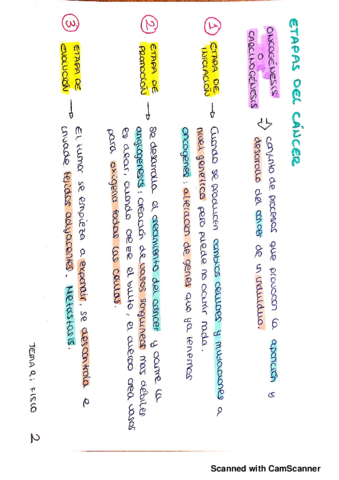 ETAPAS DEL CÁNCER
ONCOGÉNESIS
O
CARCINOGÉNESIS
⇨ conjunto de procesos que provocan la aparición y
desarrollo del cáncer de un individuo
① ETAPA DE
INICIACIÓN
→ Cuando se producen cambios celulares y mutaciones a
nivel genético pero puede no ocurrir nada.
oncogenes: alteración de genes que ya tenemos
② ETAPA DE
PROMOCIÓN
→ Se desarrolla el crecimiento del cáncer y ocurre la
angiogénesis: creación de vasos sanguíneos más débiles
es decir, cuando crece el bulto, el cuerpo crea vasos
para oxigenar todas las células.
③ ETAPA DE
EVOLUCIÓN
→ El tumor se empieza a expandir, se descontrola e
invade tejidos adyacentes. Metástasis.
TEMA 2: FISIO 2
Scanned with CamScanner